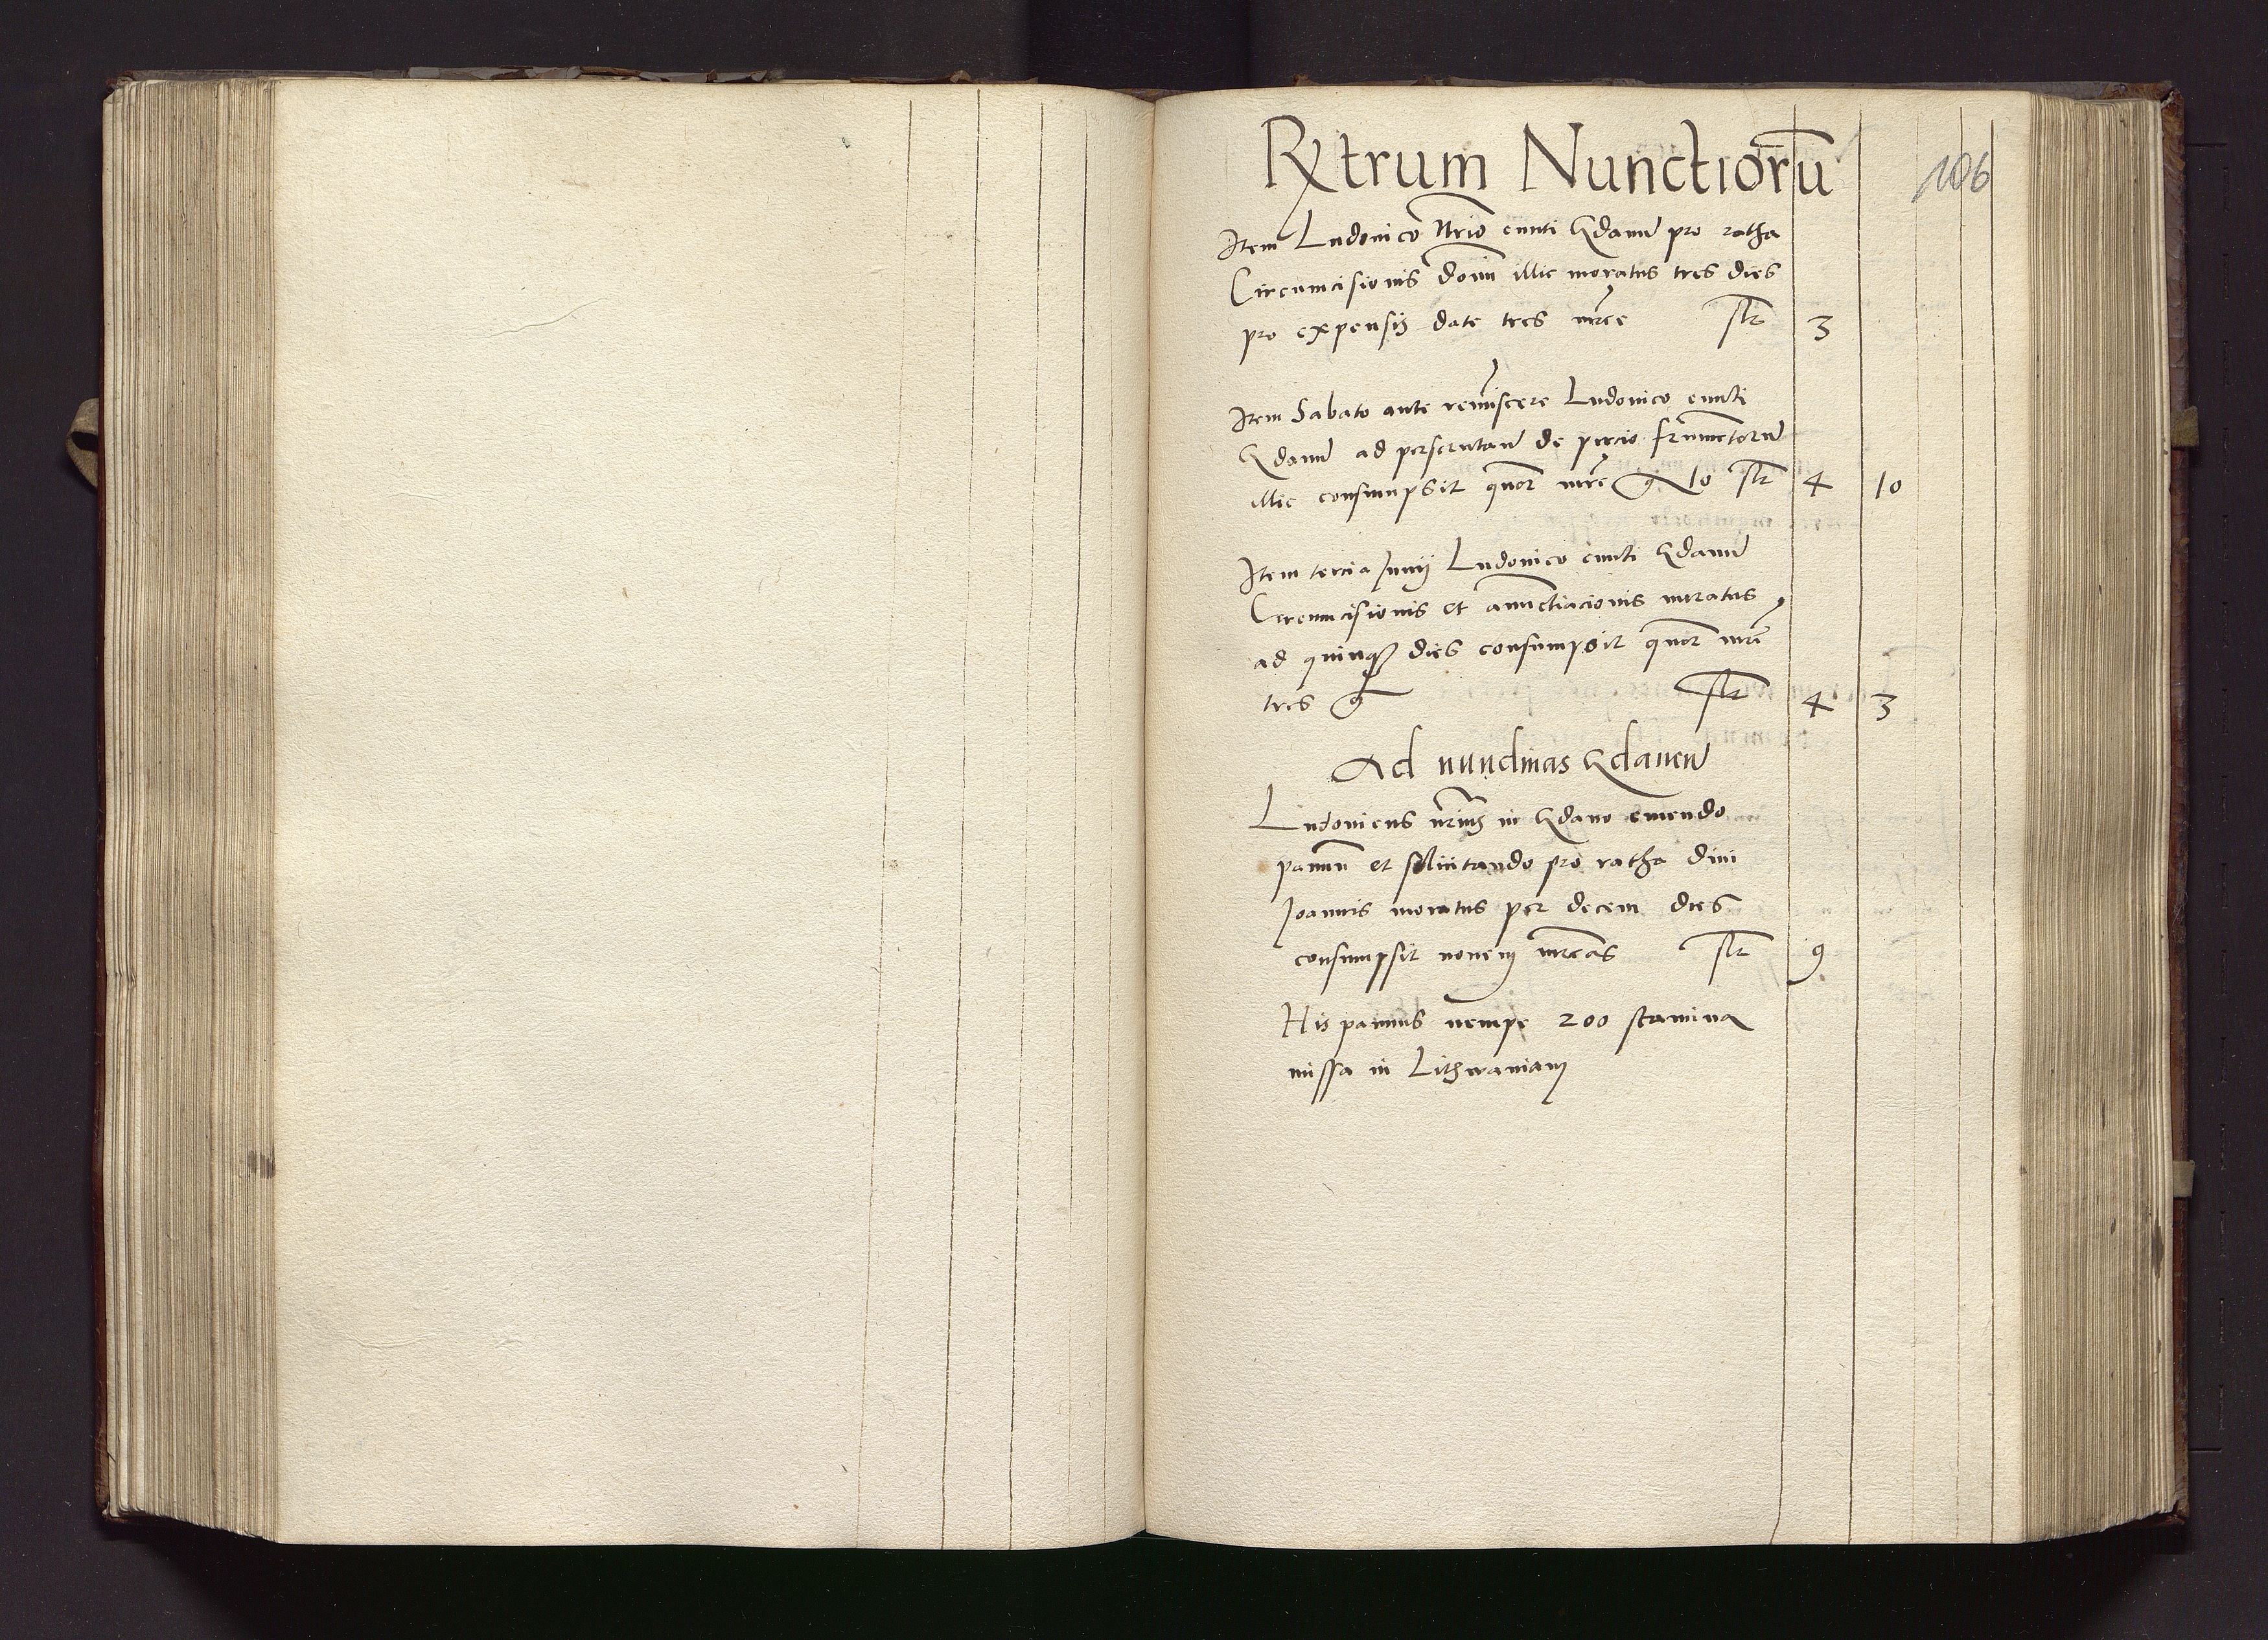 Rχtrum Nunctiorū
106
Item Ludovico Nrio eunti Gdanū pro ratha
Circumcisionis domī illic moratus tres dies
pro expensis date tres mrce ſlr 3
Item Sabato ante remīscere Ludovico eunti
Gdanū ad perscrutanū de precio frumentorū
illic consumpsit quor mrc g 10 ſlr 4 10
Item tercia Junij Ludovico eunti Gdanū
Circumcisionis et anūctiacionis moratus
ad quinqȝ dies consumpsit quor mrc
tres g ſlr 4 3
Ad nundinas Gdanen
Ludovicus nriuȝ in Gdano emendo
pannū et solicitando pro ratha divi
Joannis moratus per decem dies
consumpsit novem mrcas ſlr 9
His pannus nempe 200 stamina
missa in Lithwaniam